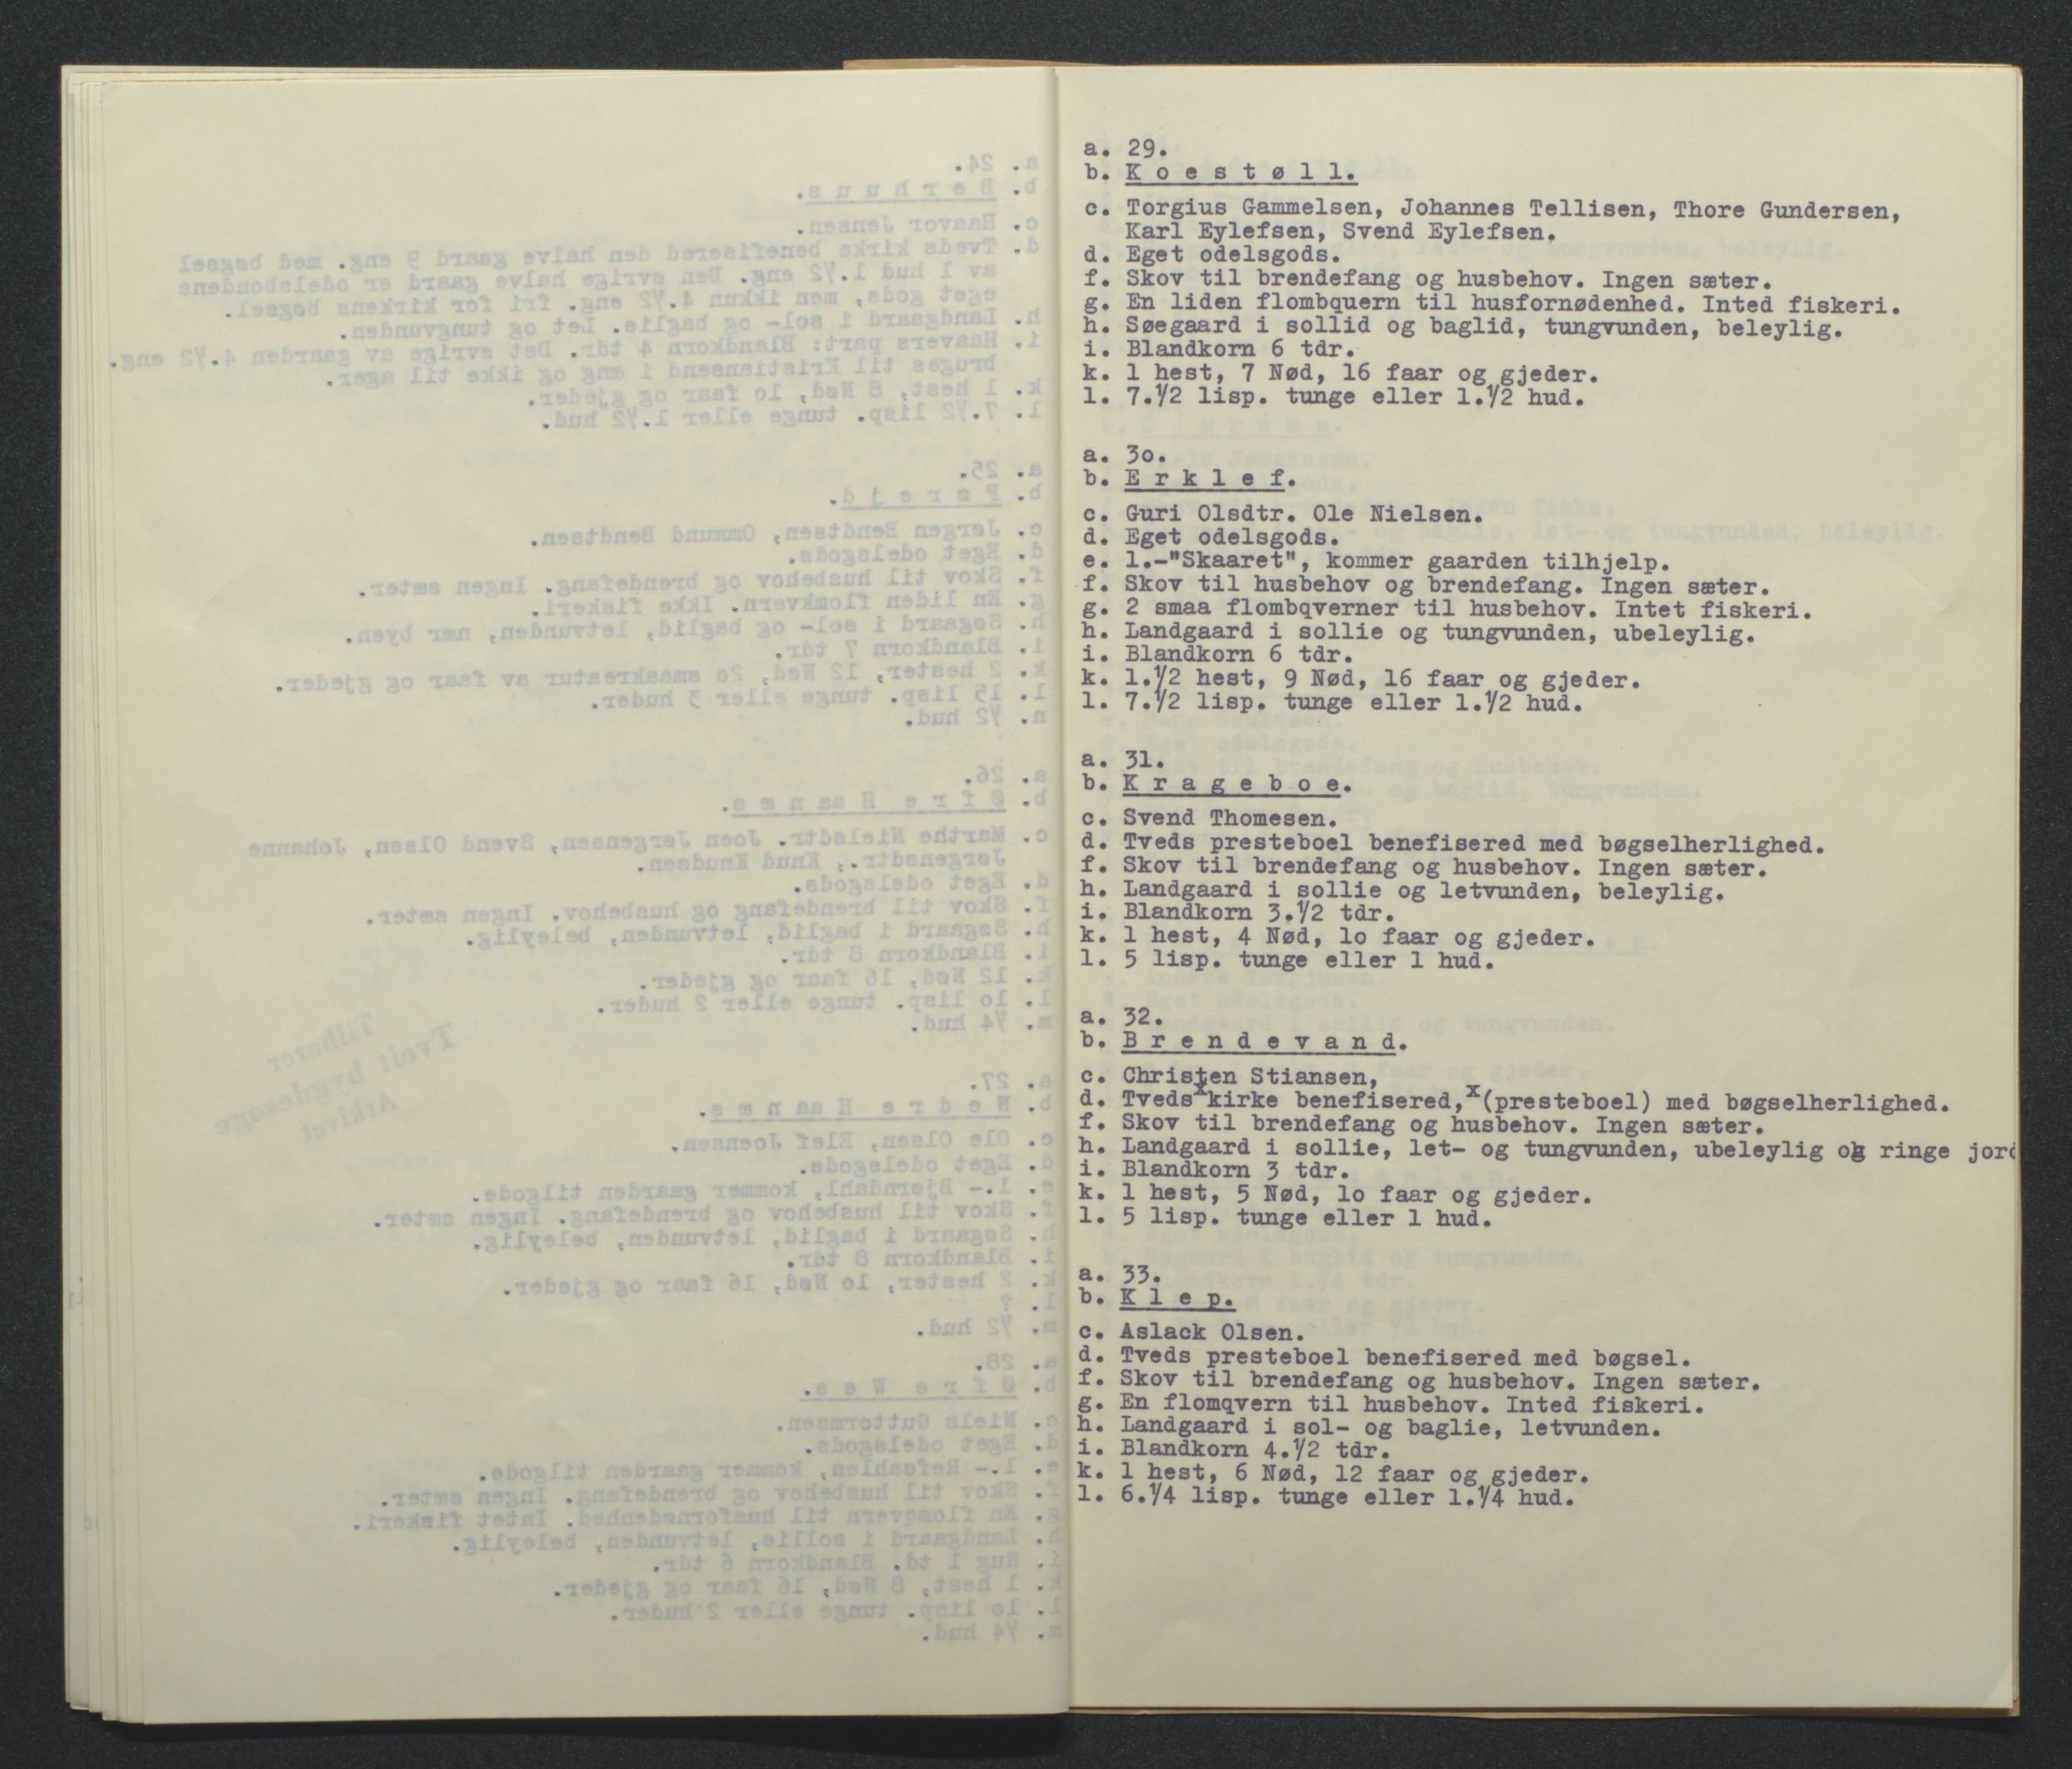 a. 29.
b. K o e s t ø l l.
c. Torgius Gammelsen, Johannes Tellisen, Thore Gundersen,
Karl Eylefsen, Svend Eylefsen.
d. Eget odelsgods.
f. Skov til brendefang og husbehov. Ingen sæter.
g. En liden flombquern til husfornødenhed. Inted fiskeri.
h. Søegaard i sollid og baglid, tungvunden, beleylig.
i. Blandkorn 6 tdr.
k. 1 hest, 7 Nød, 16 faar og gjeder.
l. 7.½ lisp. tunge eller 1.½ hud.
a. 3o.
b. E r k l e f.
c. Guri Olsdtr. Ole Nielsen.
d. Eget odelsgods.
e. 1.-"Skaaret", kommer gaarden tilhjelp.
f. Skov til husbehov og brendefang. Ingen sæter.
g. 2 smaa flombqverner til husbehov. Intet fiskeri.
h. Landgaard i sollie og tungvunden, ubeleylig.
i. Blandkorn 6 tdr.
k. 1.½ hest, 9 Nød, 16 faar og gjeder.
l. 7.½ lisp. tunge eller 1.½ hud.
a. 31.
b. K r a g e b o e.
c. Svend Thomesen.
d. Tveds presteboel benefisered med bøgselherlighed.
f. Skov til brendefang og husbehov. Ingen sæter.
h. Landgaard i sollie og letvunden, beleylig.
i. Blandkorn 3.½ tdr.
k. 1 hest, 4 Nød, 1o faar og gjeder.
l. 5 lisp. tunge eller 1 hud.
a. 32.
b. B r e n d e v a n d.
c. Christen Stiansen,
d. Tveds x kirke benefisered, x (presteboel) med bøgselherlighed.
f. Skov til brendefang og husbehov. Ingen sæter.
h. Landgaard i sollie, let- og tungvunden, ubeleylig og ringe jord
i. Blandkorn 3 tdr.
k. 1 hest, 5 Nød, 1o faar og gjeder.
l. 5 lisp. tunge eller 1 hud.
a. 33.
b. K l e p.
c. Aslack Olsen.
d. Tveds presteboel benefisered med bøgsel.
f. Skov til brendefang og husbehov. Ingen sæter.
g. En flomqvern til husbehov. Inted fiskeri.
h. Landgaard i sol- og baglie, letvunden.
i. Blandkorn 4.½ tdr.
k. 1 hest, 6 Nød, 12 faar og gjeder.
l. 6.¼ lisp. tunge eller 1.¼ hud.